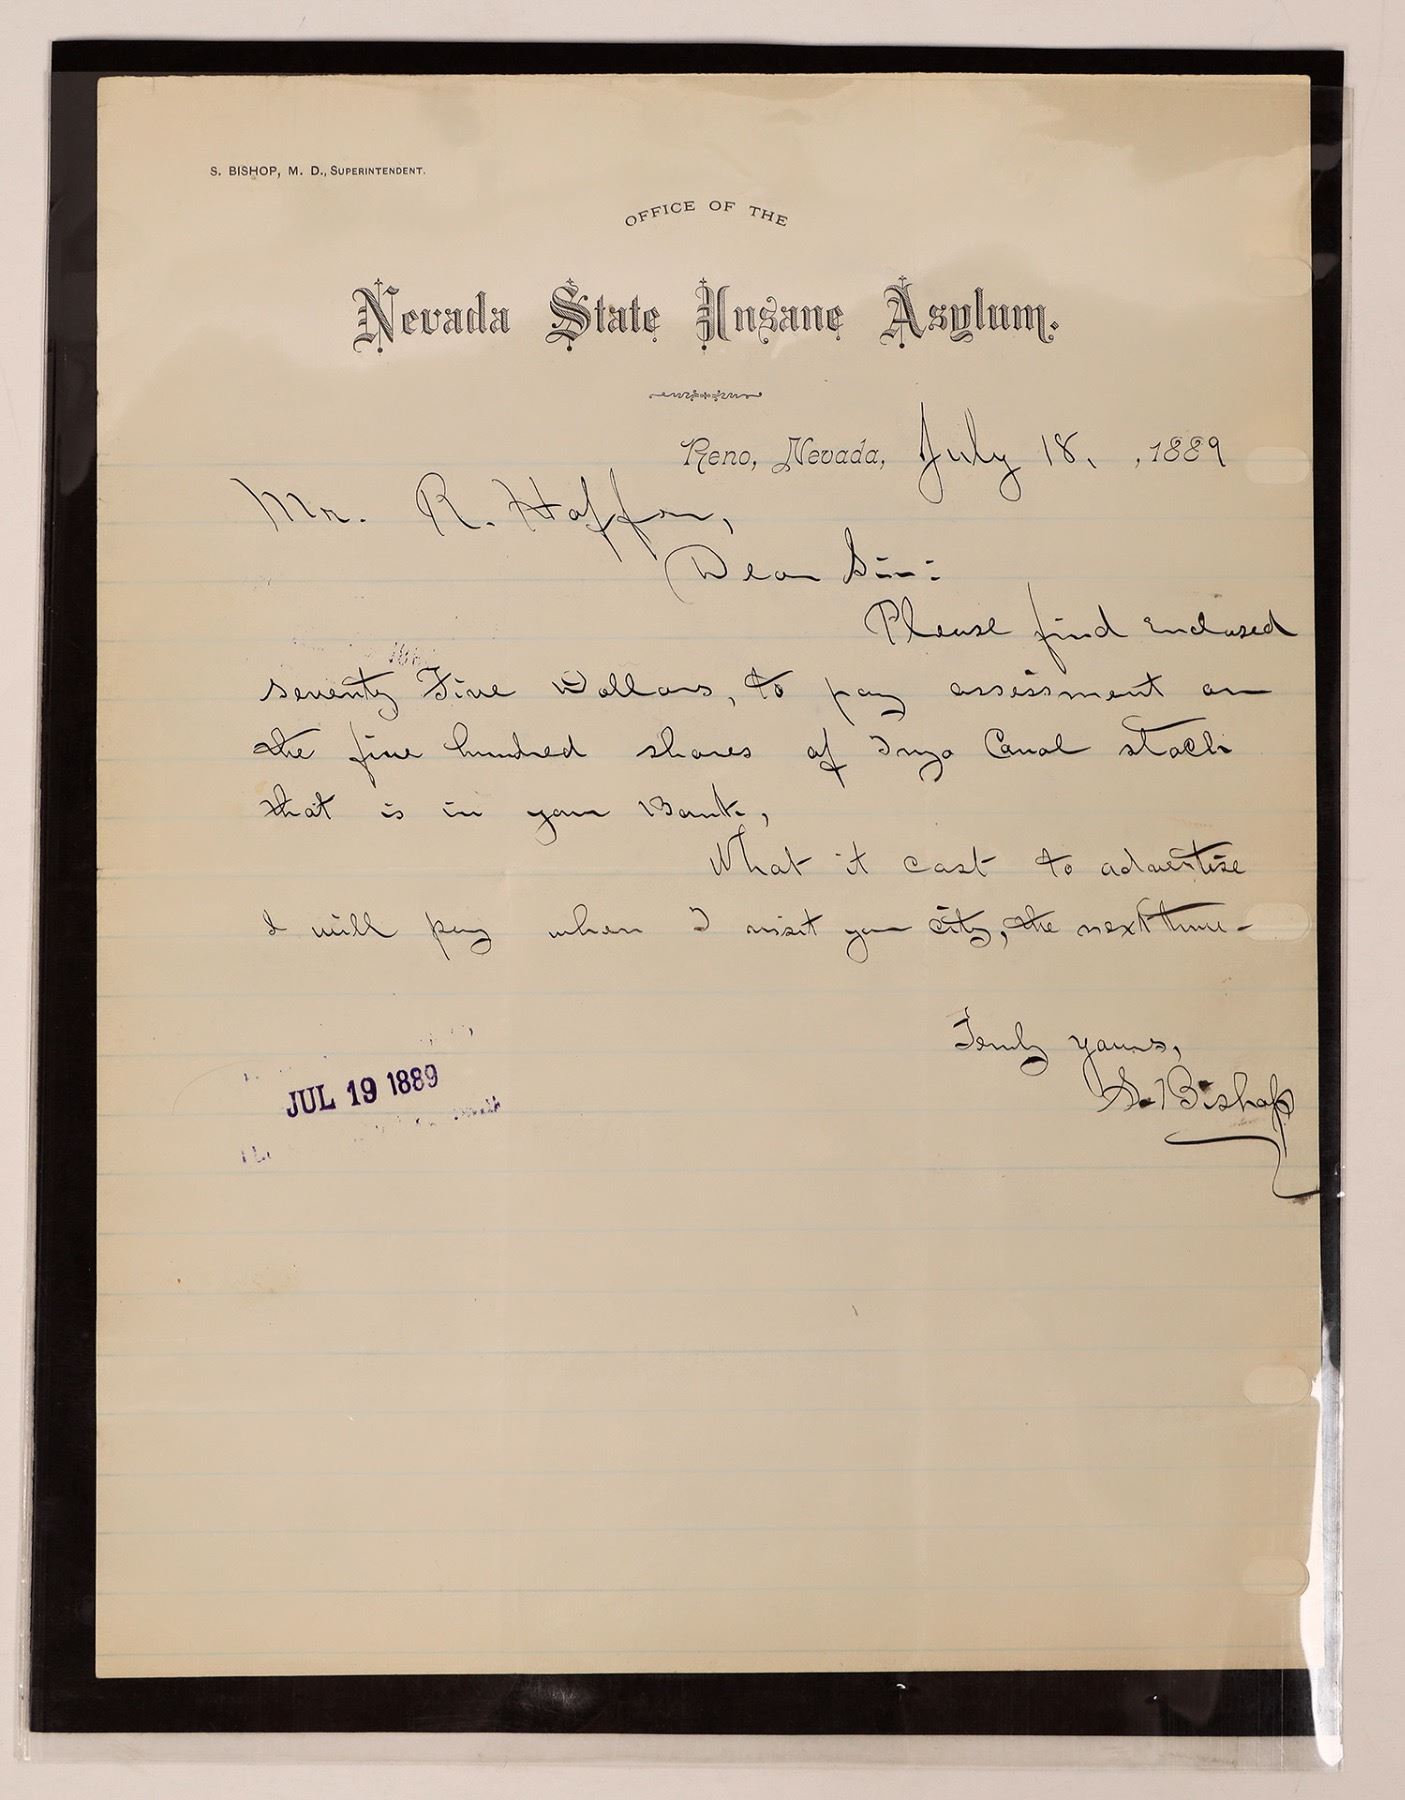 S. BISHOP, M. D., SUPERINTENDENT.
OFFICE OF THE
Nevada State Insane Asylum.
Reno, Nevada, July 18, , 1889
Mr. R. Hoffer,
Dear Sir:
Please find enclosed
seventy Five Dollars, to pay assessment on
the five hundred shares of Inyo Canal stock
that is in your Bank,
What it cost to advertise
I will pay when I visit your city, the next time-
Truly yours,
S. Bishop
JUL 19 1889